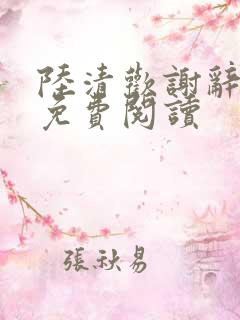 陸清歡謝辭
免費閱讀
張秋易